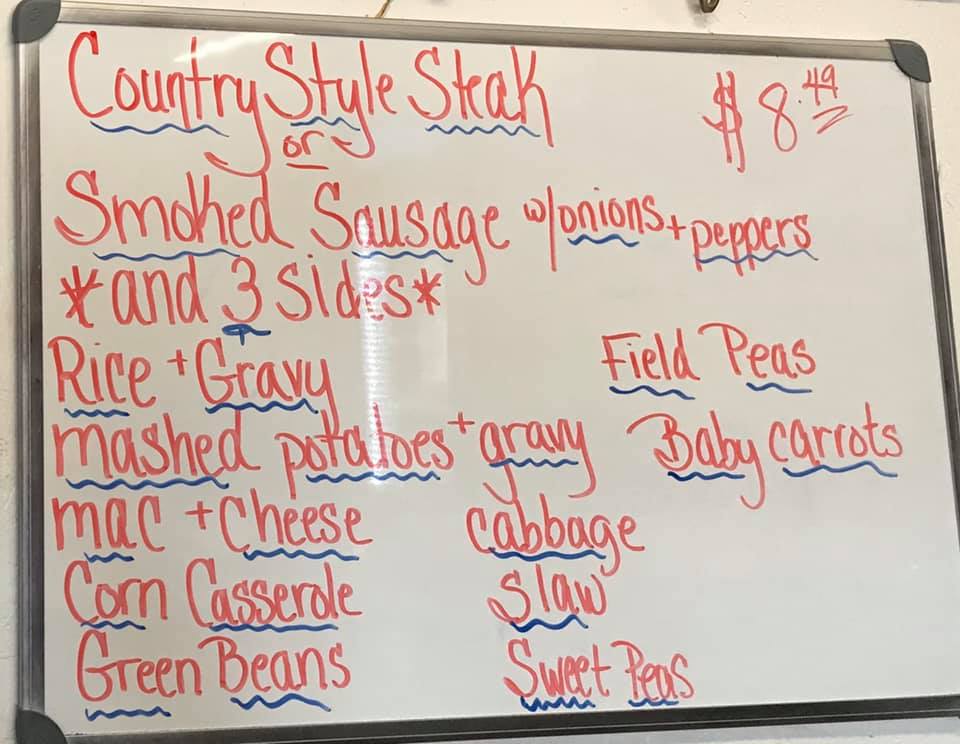 Country Style Steak $8.49
or
Smoked Sausage w/onions + peppers
*and 3 sides*
Rice + Gravy Field Peas
mashed potatoes + gravy Baby carrots
mac + Cheese cabbage
Corn Casserole slaw
Green Beans Sweet Peas